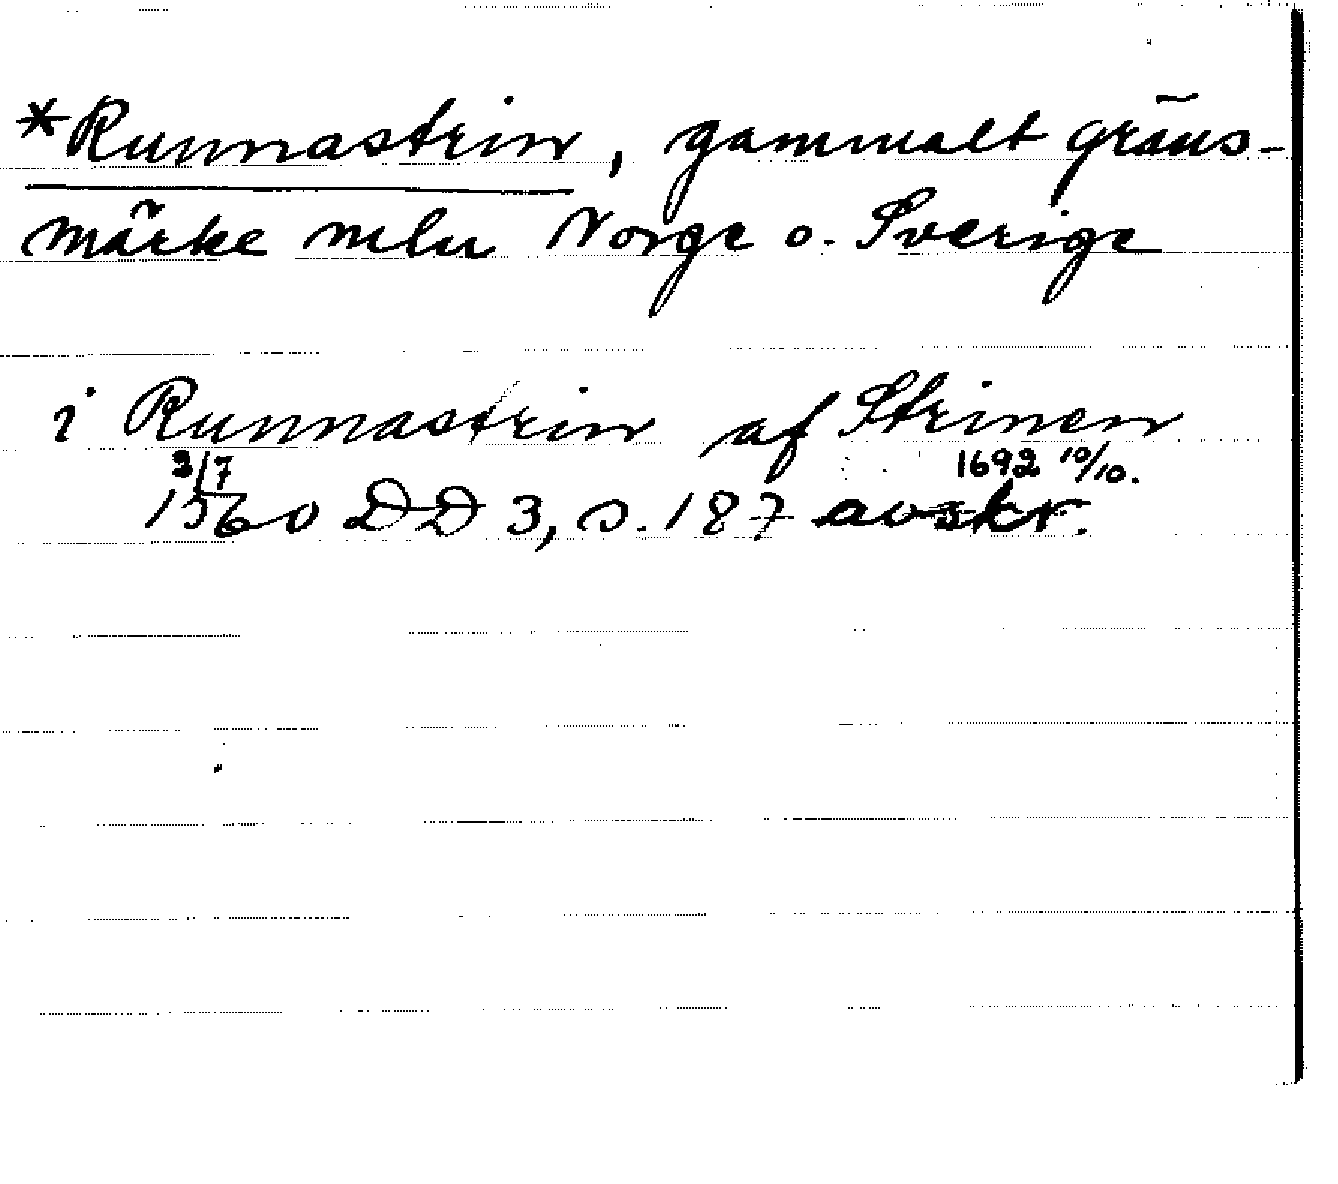 *Runnastrin, gammalt gräns-
märke mlu Norge o. Sverige
i Runnastrin af Strinen
3/7 1692 10/10.
1560 DD 3, s. 187 avskr.